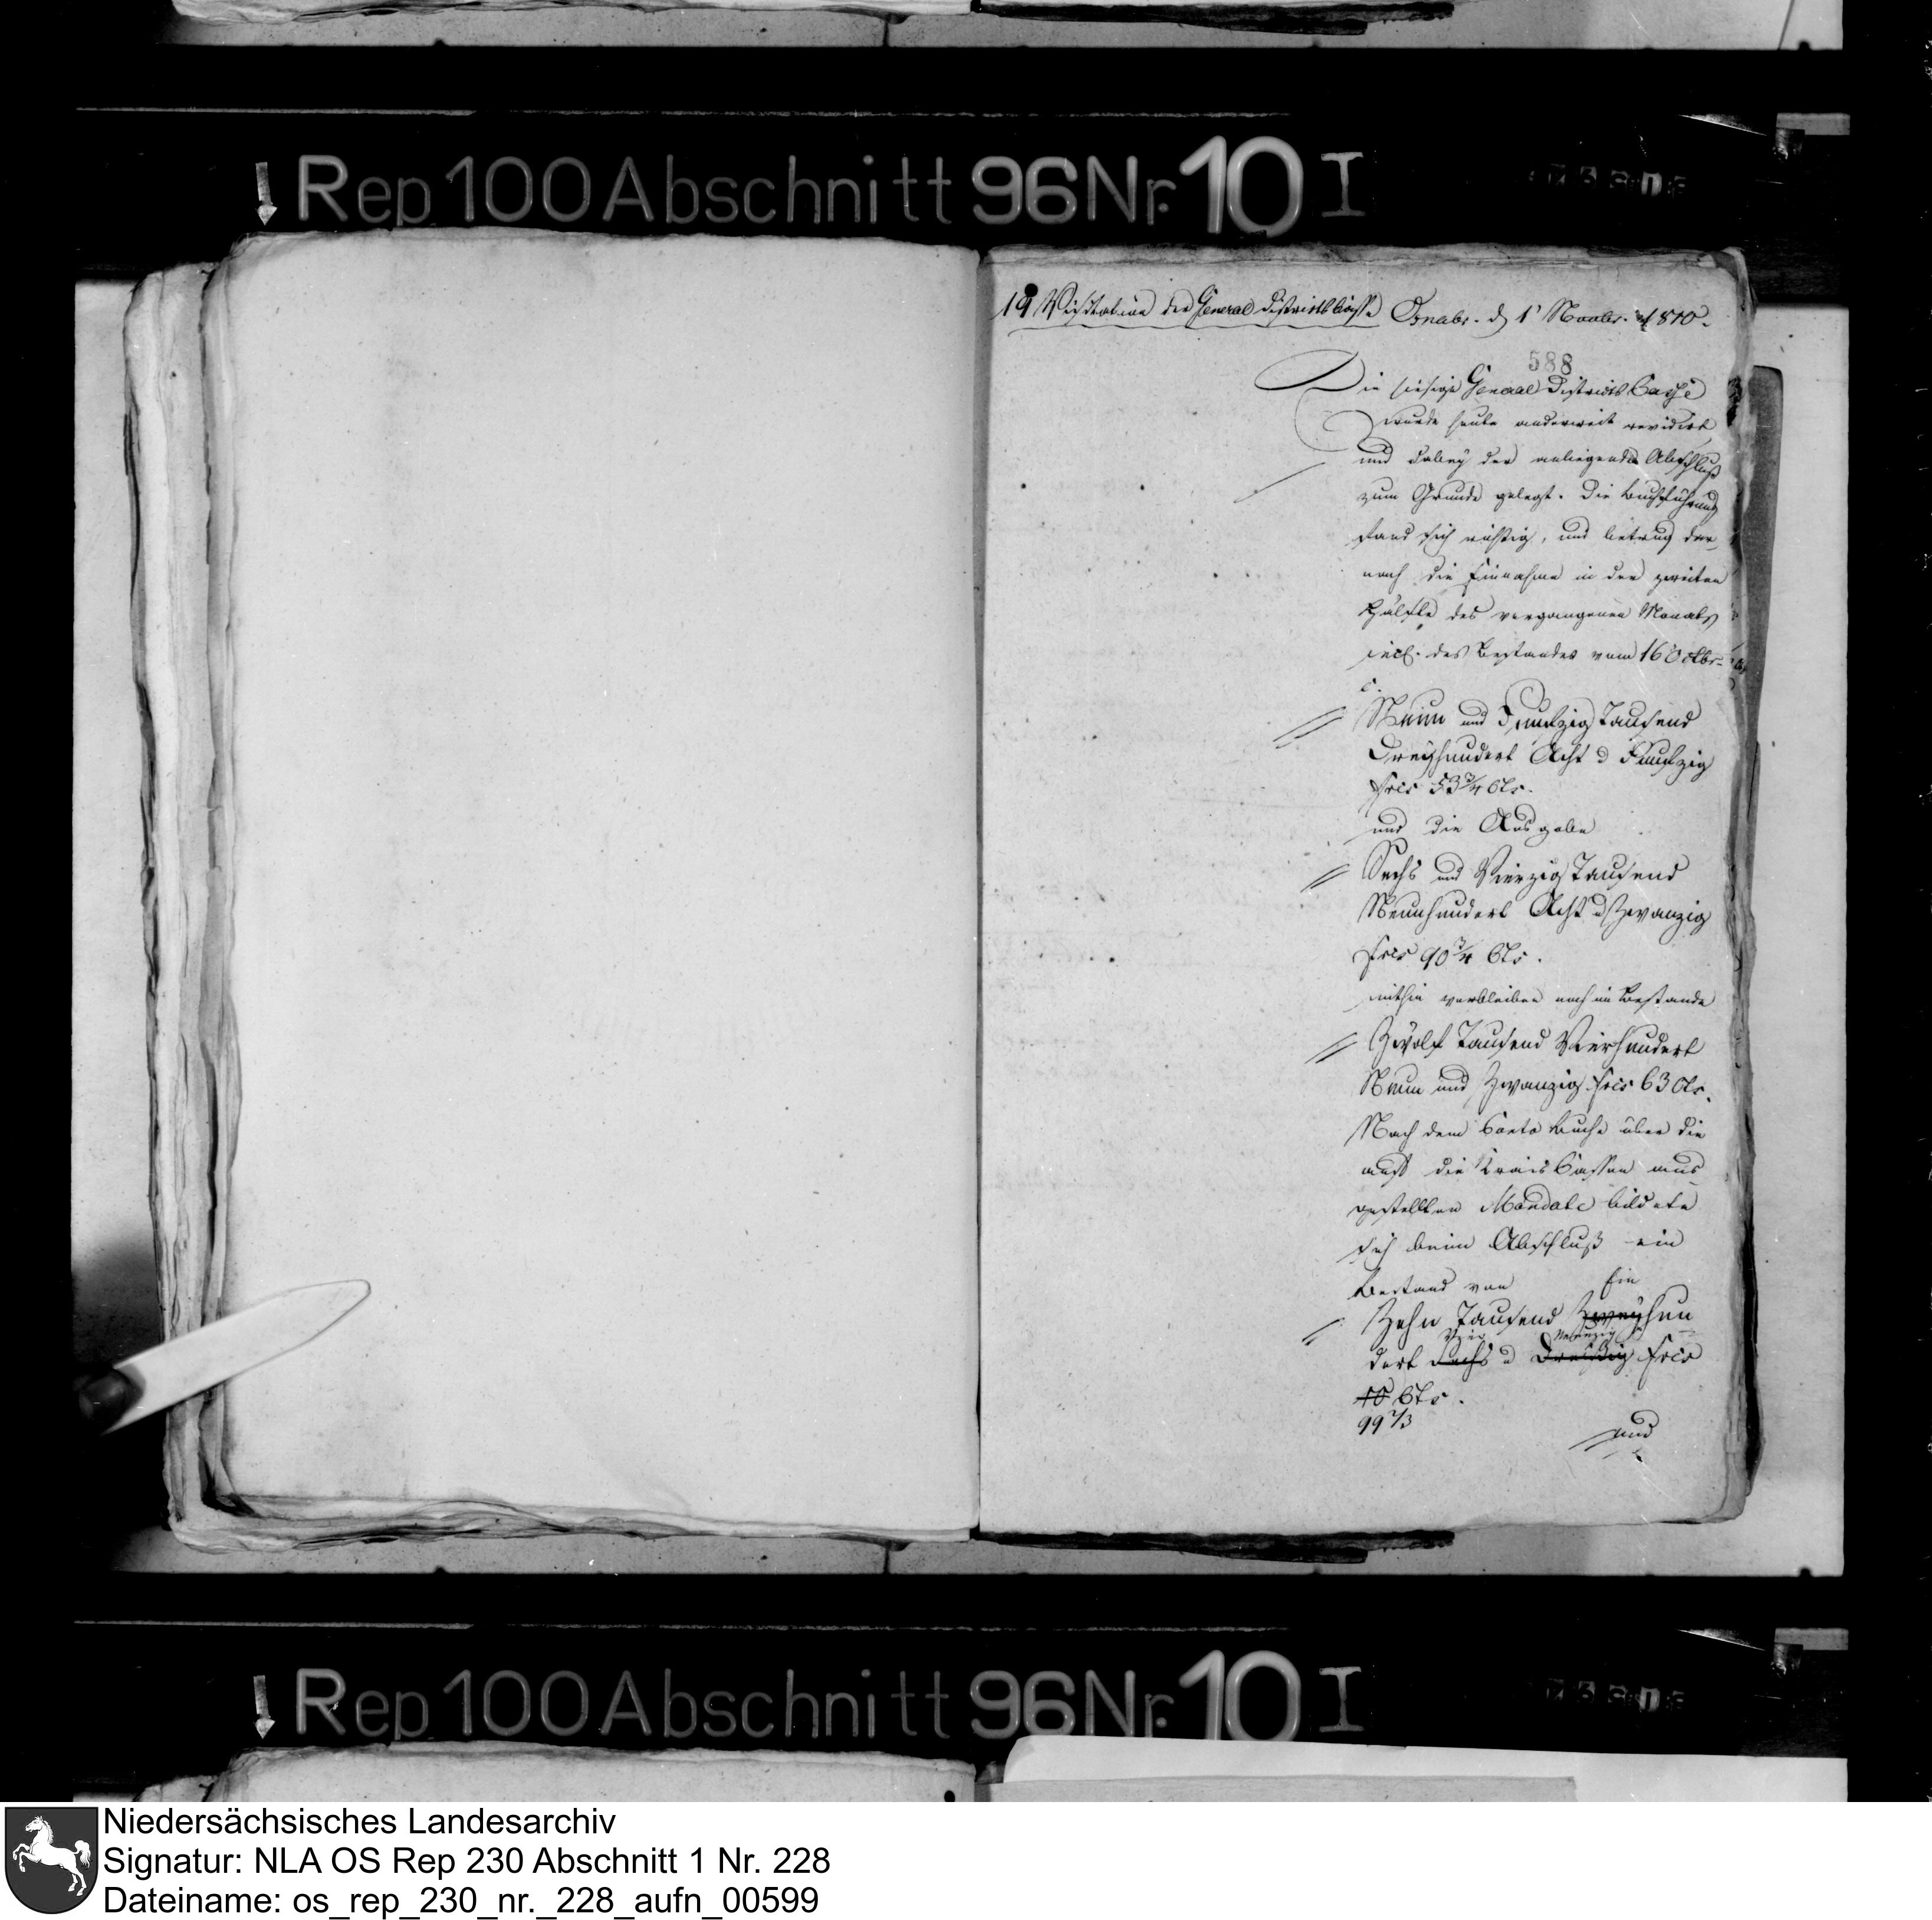 Rep 100 Abschnitt 96 Nr. 10 I
19 Visitation der General Districts Casse Osnabr. d 1' Novbr. 1810.
588
Die hiesige General Districts Casse
wurde heute anderweit revidirt
und dabey der anliegende Abschluß
zum Grunde gelegt. Die Buchführung
fand sich richtig, und betrug dar
nach die Einnahme in der zweiten
Hälfte des vergangenen Monats
incl. des Bestandes vom 16 Octbr.
c.
Neun und Funfzig Tausend
Dreyhundert Acht u Funfzig
frcs 53 3/4 Cts.
und die Ausgabe
Sechs und Vierzig Tausend
Neunhundert Acht u Zwanzig
frcs 90 3/4 Cts.
mithin verbleiben noch im Bestande
Zwölf Tausend Vierhundert
Neun und Zwanzig frcs 63 Cts.
Nach dem Conto Buche über die
auf die Kreis Cassen aus
gestellten Mandate bildete
sich beim Abschluß ein
Bestand von Ein
Zehn Tausend Zweyhun
Vier Neunzig
dert Sechs u Dreißig frcs
10 Cts.
99 2/3
und
Rep 100 Abschnitt 96 Nr. 10 I
Niedersächsisches Landesarchiv
Signatur: NLA OS Rep 230 Abschnitt 1 Nr. 228
Dateiname: os_rep_230_nr._228_aufn_00599